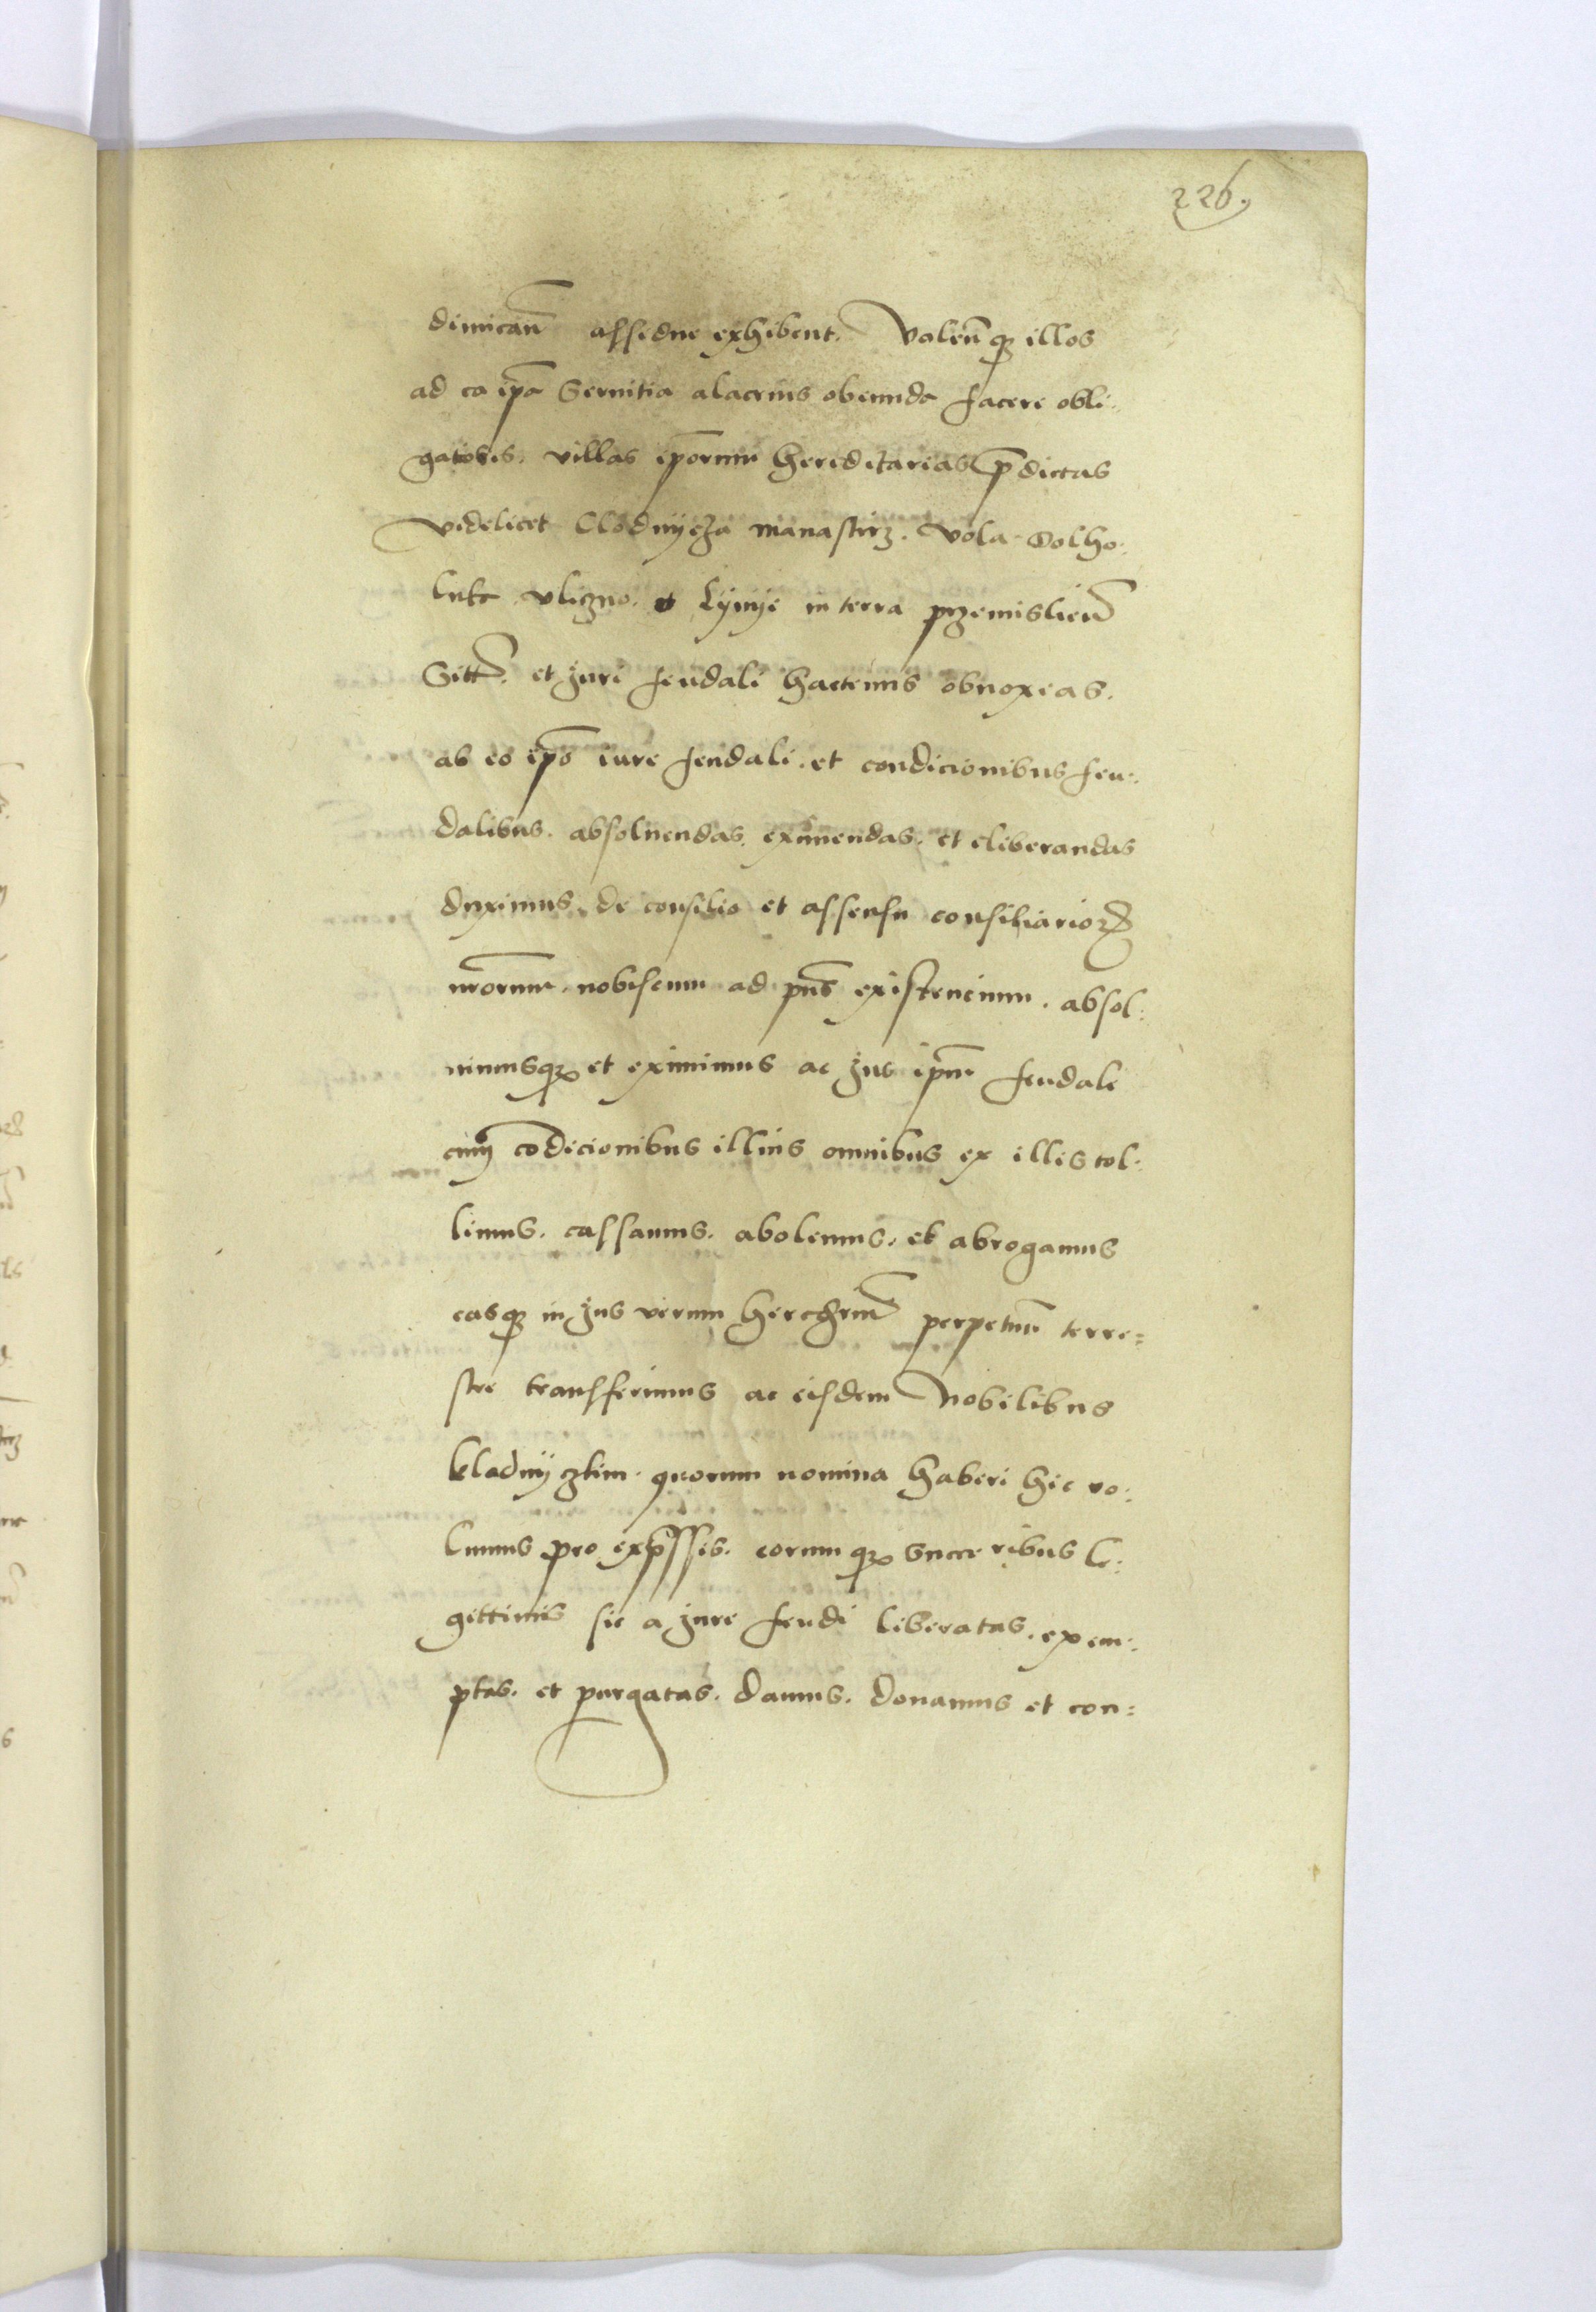 226.
dimican̄ assidue exhibent. Volen̄q3 illos
ad ea ip̄a Seruitia alacrius obeunda facere obli:
gatores. villas ip̄orum hereditarias p̄dictas
videlicet Clodnycza manastirz. Vola Dolho:
luka vliczno. et Lynye in terra przemislien̄
Sitt̄. et juri feudali hactenus obnoxeas.
ab eo ip̄o iure feudali. et condicionibus feu:
dalibus. absoluendas. eximendas. et eliberandas
duximus. de consilio et assensu consiliarioꝝ
nr̄orum. nobiscum ad pn̄s existencium. absol:
uimusq3 et eximimus ac jus ip̄m feudale
cum cōdicionibus illius omnibus ex illis tol:
limus. cassamus. abolemus. et abrogamus
easq3 in jus verum
perpetuū terre=
stre transferimus ac eisdem Nobilibus
kladny
quorum nomina haberi hic vo:
lumus pro exp̄ssis. eorumq3
le:
gittimis sic a jure feudi liberatas. exem:
ptas. et purgatas. damus. donamus et con=